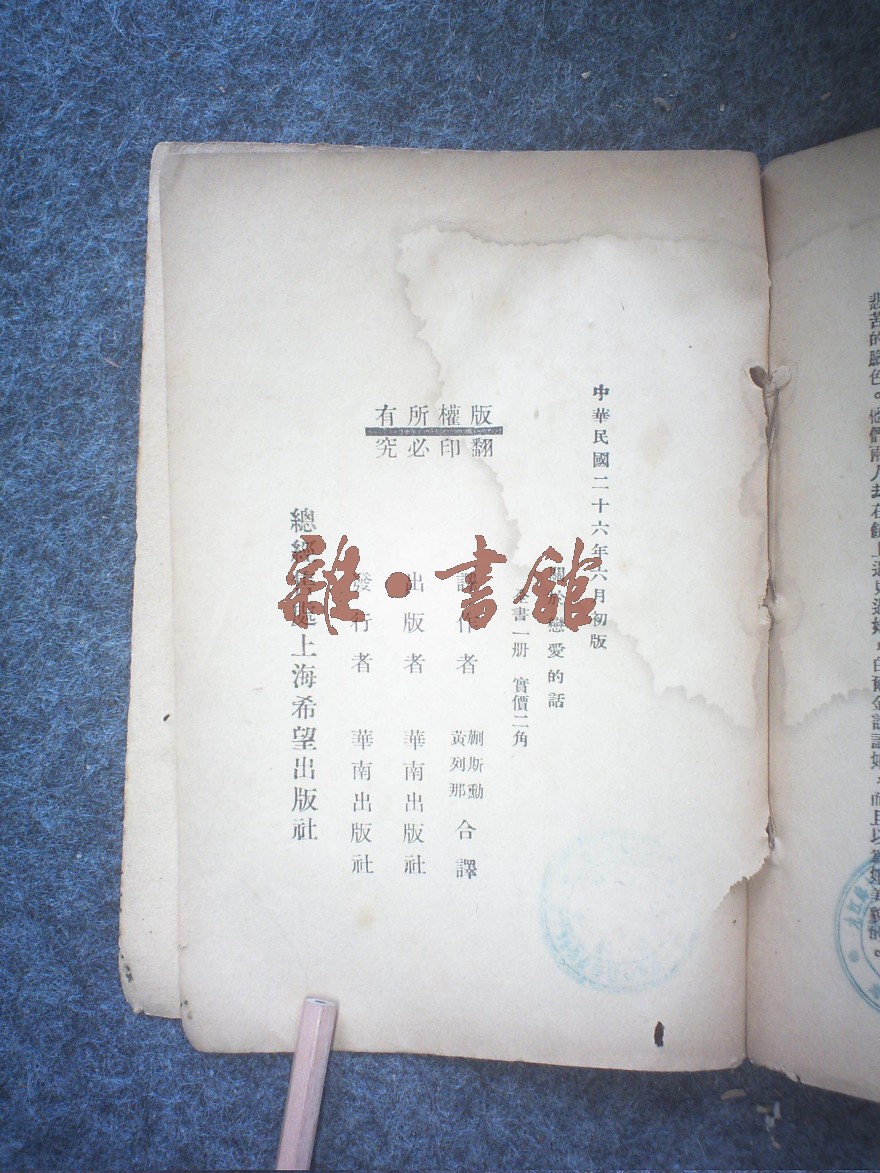 中華民國二十六年六月初版
關於戀愛的話
全書一册 實價二角
版權所有
翻印必究
譯作者 蒯斯勳 黃列那 合譯
出版者 華南出版社
發行者 華南出版社
總經售處上海希望出版社
雜·書館
悲苦的臉色。他們兩人却在